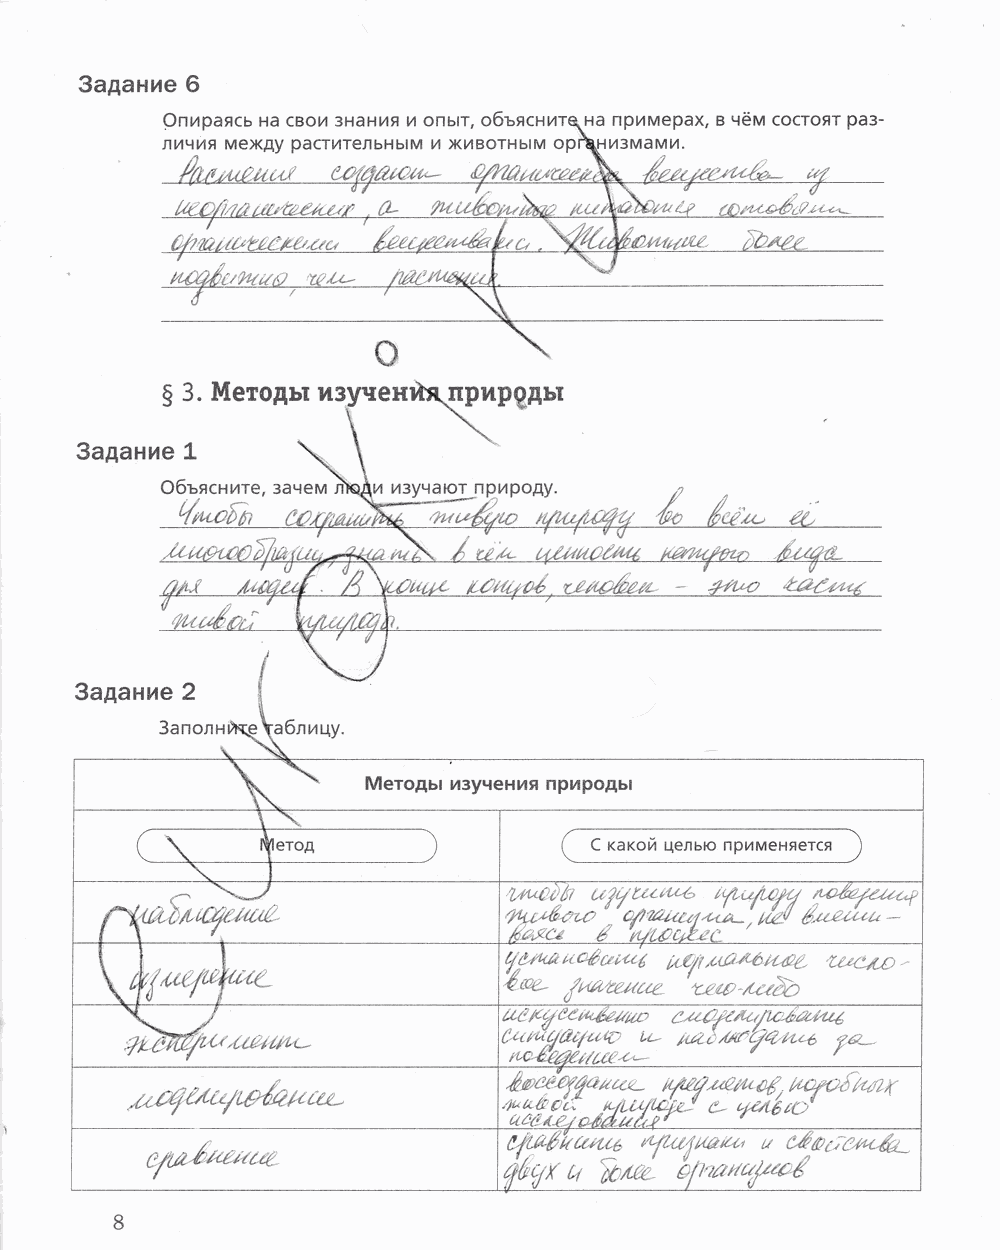 Задание 6
Опираясь на свои знания и опыт, объясните на примерах, в чём состоят раз-
личия между растительным и животным организмами.
Растения создают органические вещества из
неорганических, а животные питаются готовыми
органическими веществами. Животные более
подвижно, чем растения.
§ 3. Методы изучения природы
Задание 1
Объясните, зачем люди изучают природу.
Чтобы сохранить живую природу во всём её
многообразии, знать в чём ценность каждого вида
для людей. В конце концов, человек – это часть
живой природы.
Задание 2
Заполните таблицу.
Методы изучения природы
Метод
С какой целью применяется
наблюдение
чтобы изучить природу поведения
живого организма, не вмеши-
ваясь в процесс
измерение
установить нормальное число-
вое значение чего-либо
эксперимент
искусственно смоделировать
ситуацию и наблюдать за
поведением
моделирование
воссоздание предметов, подобных
живой природе с целью
исследования
сравнение
сравнить признаки и свойства
двух и более организмов
8